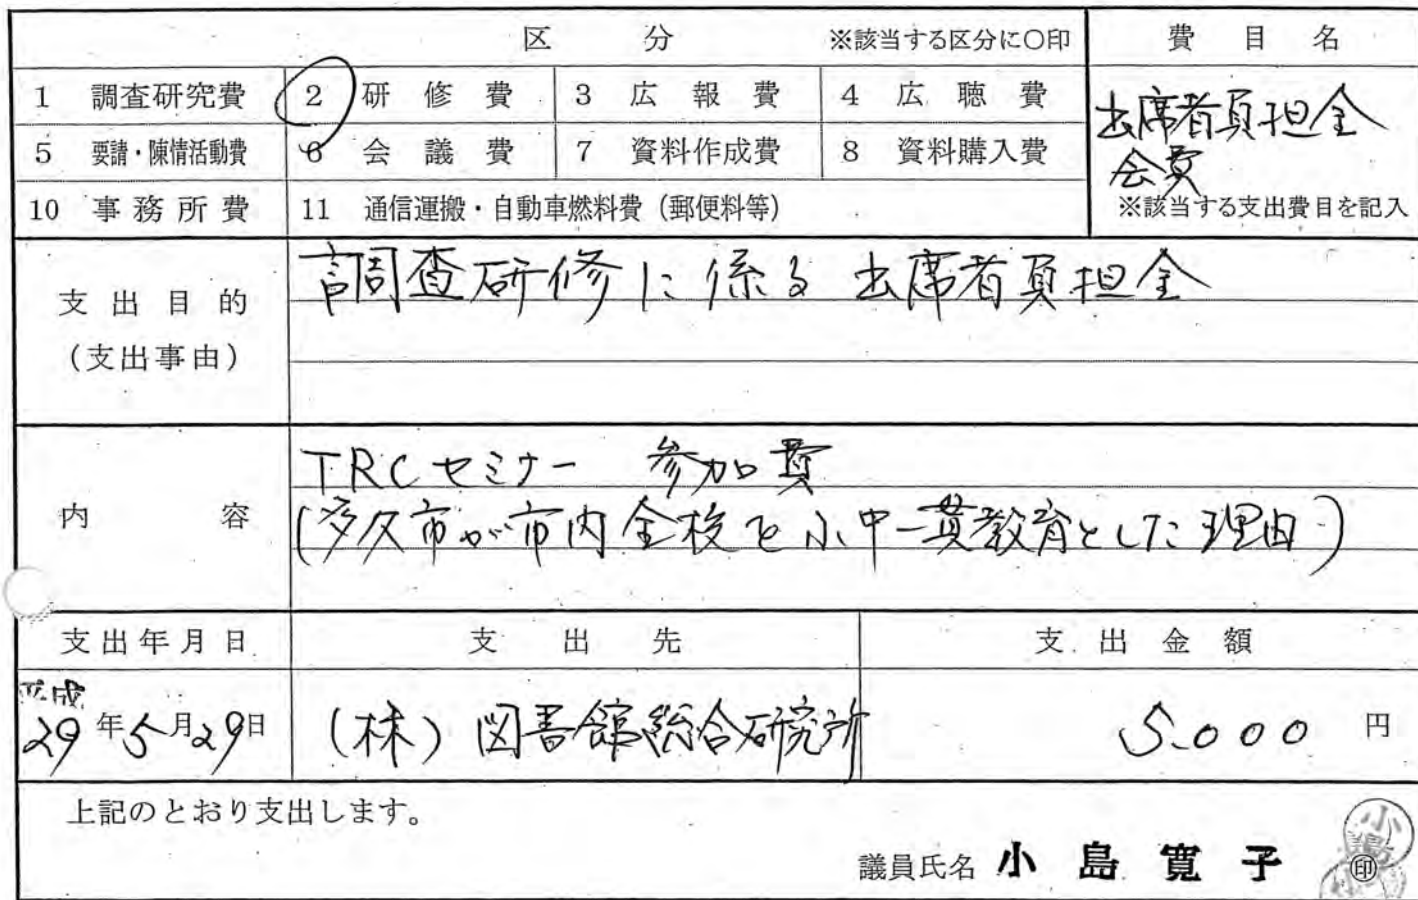 区 分 ※該当する区分に○印
費 目 名
1 調査研究費 2 研 修 費 3 広 報 費 4 広 聴 費
5 要請・陳情活動費 6 会 議 費 7 資料作成費 8 資料購入費
10 事 務 所 費 11 通信運搬・自動車燃料費（郵便料等）
出席者負担金
会費
※該当する支出費目を記入
支 出 目 的
(支出事由)
調査研修に係る 出席者負担金
内 容
TRCセミナー 参加費
(多久市が市内全校を小中一貫教育とした理由)
支出年月日 支 出 先 支 出 金 額
平成
29年5月29日 (株) 図書館総合研究所 5,000 円
上記のとおり支出します。
議員氏名 小 島 寛 子 ㊞
小島